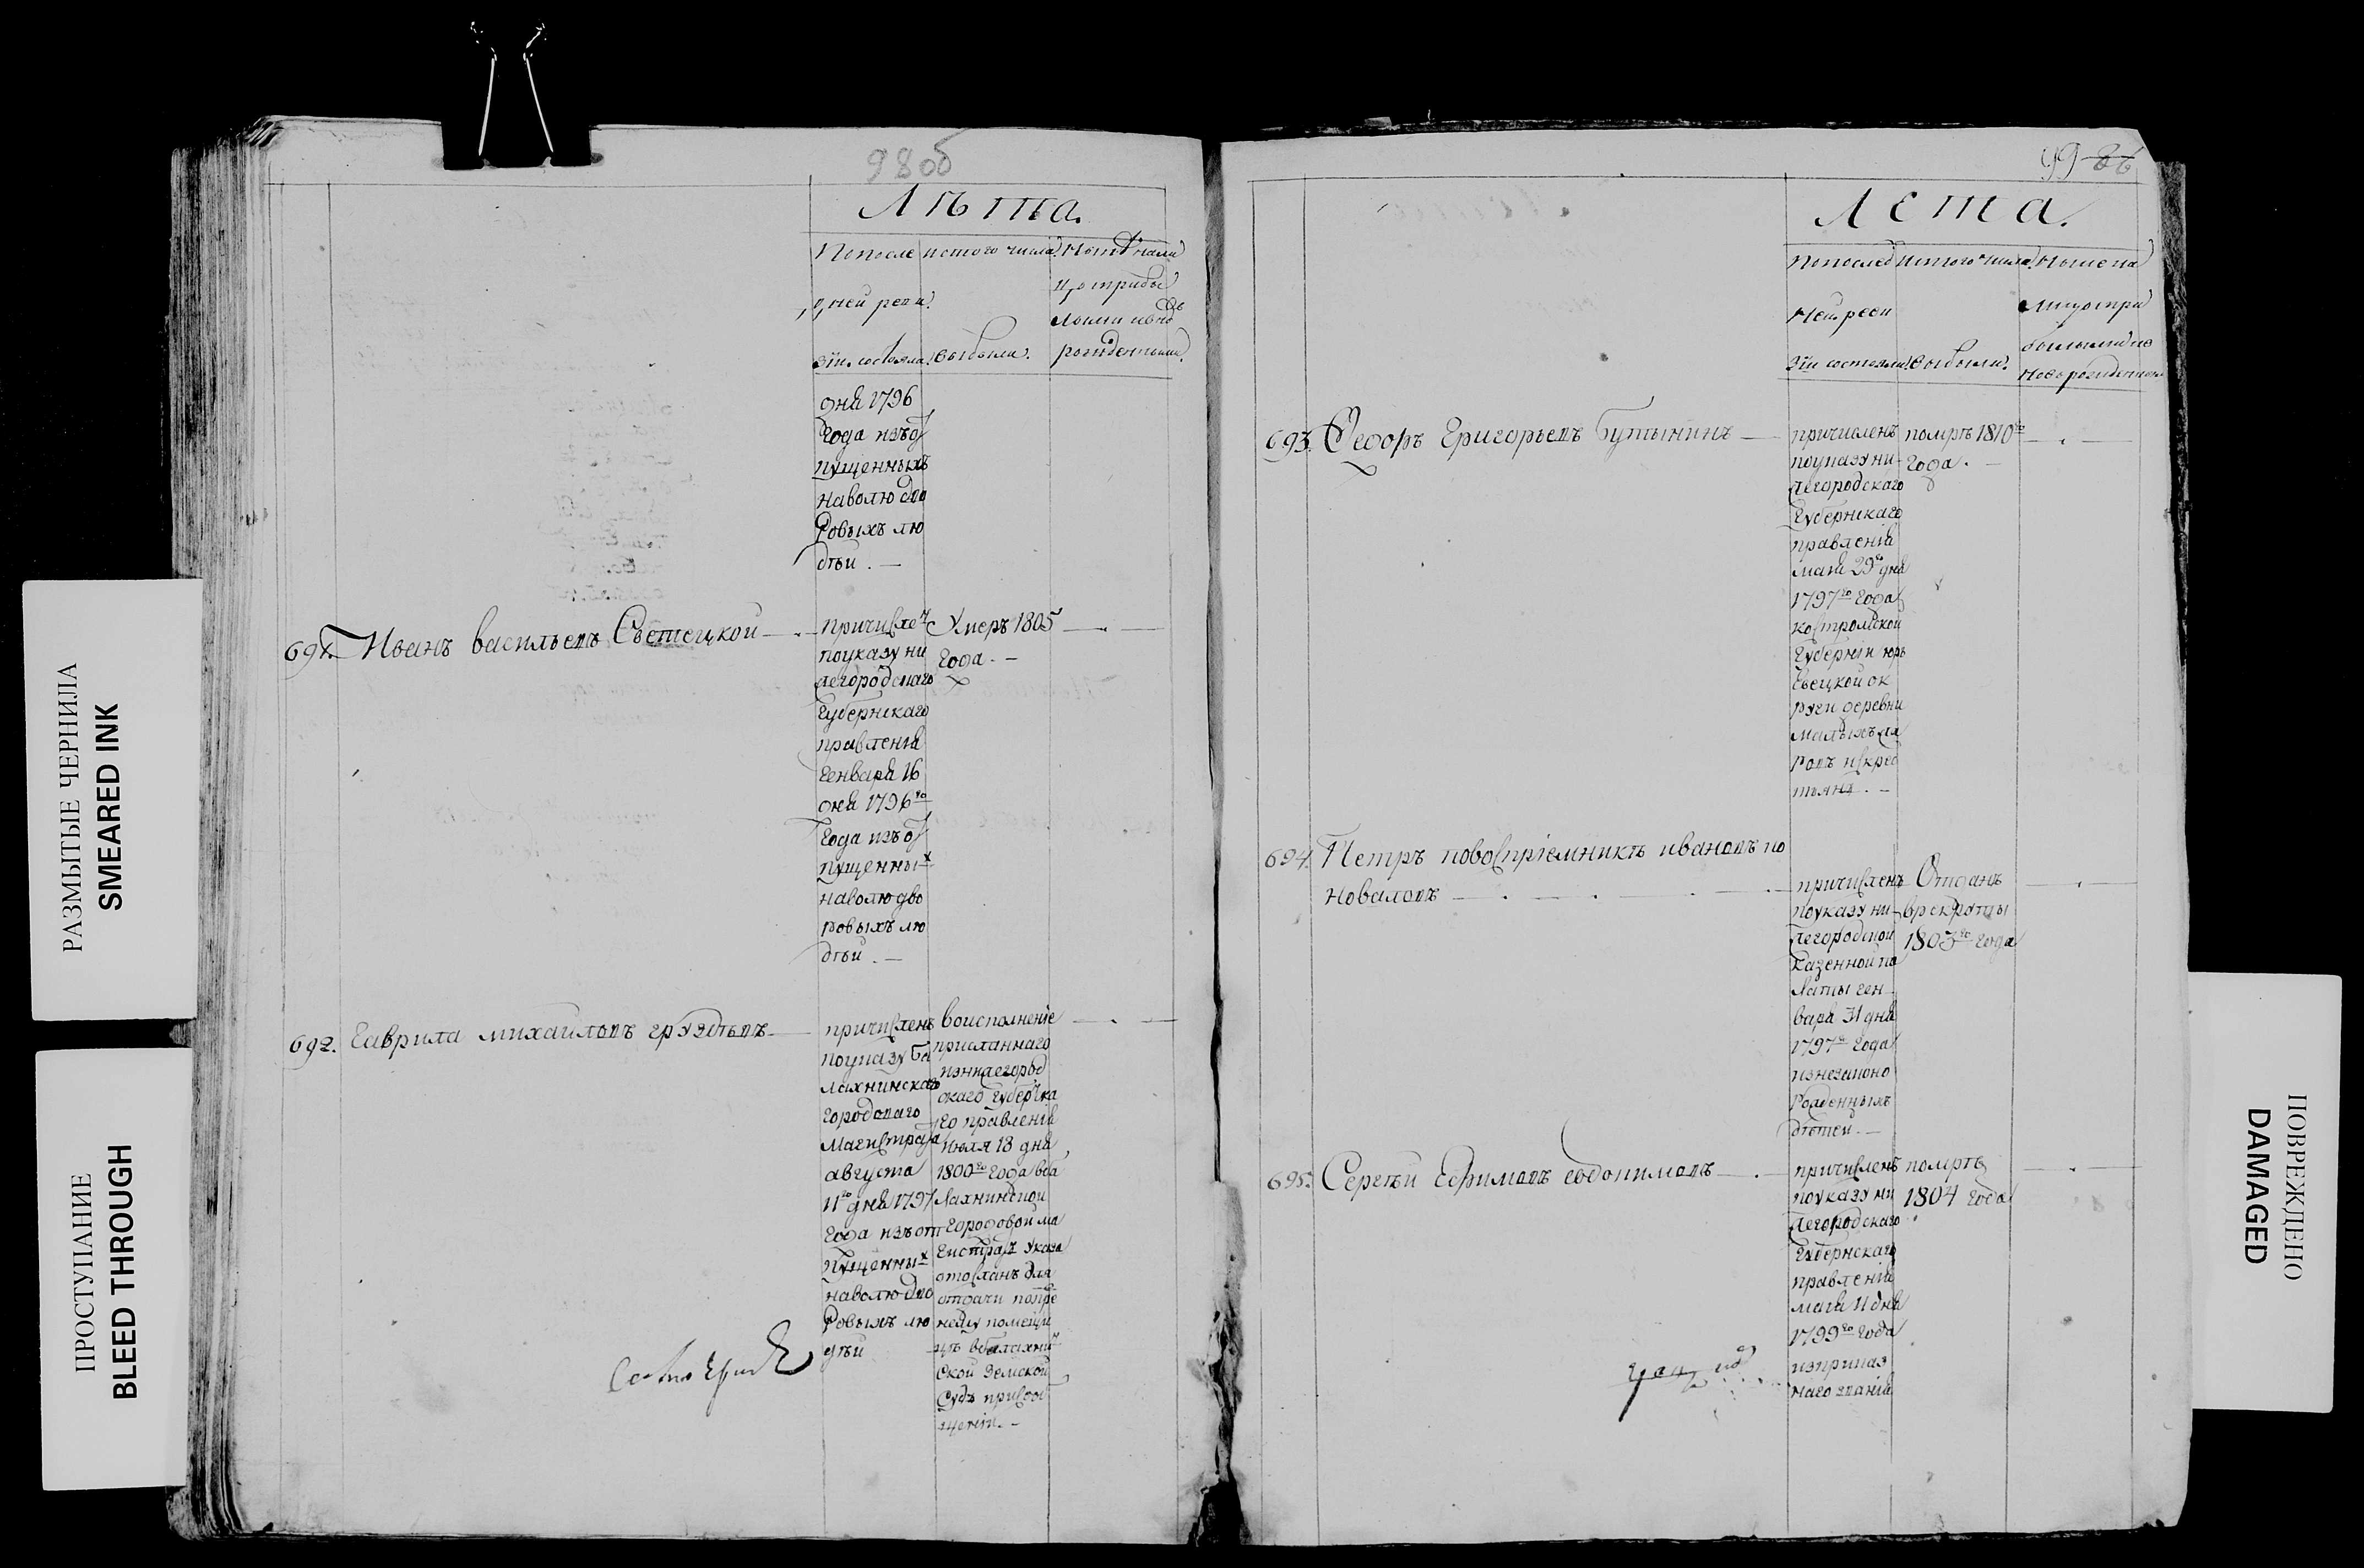 98об
Лѣта.
По после
дней реви
зіи состояли
ис того числа
выбыли.
дня 1796
года изъ от
пущенныхъ
на волю дво
ровыхъ лю
дѣй. —
691. Иванъ Васильевъ Светецкой — . —
причисле н
по указу ни
жегородскаго
губернскаго
правленія
генваря 16
дня 1796 го
года изъ от
пущенны х
на волю дво
ровыхъ лю
дѣй. —
Умеръ 1805
года. —
692. Гаврила Михайловъ Груздевъ —
причисленъ
по указу ба
лахнинскаго
городоваго
магистрата
августа
11 го дня 1797
года изъ от
пущенны х
на волю дво
ровыхъ лю
дѣй
во исполненіе
присланнаго
из нижегород
скаго губернска
го правленія
июля 18 дня
1800 го года в ба
лахнинской
городовой ма
гистратъ указа
отосланъ для
отдачи попре
жнему помещи
цѣ в балахнин
ской земской
судъ при сооб
щеніи. —
99 86
Лета.
По послед
ней реви
зіи состояли
ис того числа
выбыли.
Ныне на
лицо при
былыми и
новорожденными
693. Федоръ Григорьевъ Бутынинъ —
причисленъ
по указу ни-
жегородскаго
губернскаго
правленія
мая 29 го дня
1797 го года
костромской
губерніи юрь
евецкой ок
руги деревни
ис крес
тьянъ. —
помръ 1810 го
года. —
694. Петръ новоспріемникъ Ивановъ ко
новаловъ — . — . — . —
причисленъ
по указу ни-
жегородской
казенной па
латы ген-
варя 31 дня
1797 го года
из незаконо
рожденныхъ
дѣтей. —
Отданъ
в рекруты
1803 го года
695. Сергѣй Ефимовъ Евдокимовъ — .
причисленъ
по указу ни
жегородскаго
губернскаго
правленія
мая 11 дня
1799 го года
из приказ
наго званія
помрѣ
1804 года
РАЗМЫТЫЕ ЧЕРНИЛА
SMEARED INK
ПРОСТУПАНИЕ
BLEED THROUGH
ПОВРЕЖДЕНО
DAMAGED